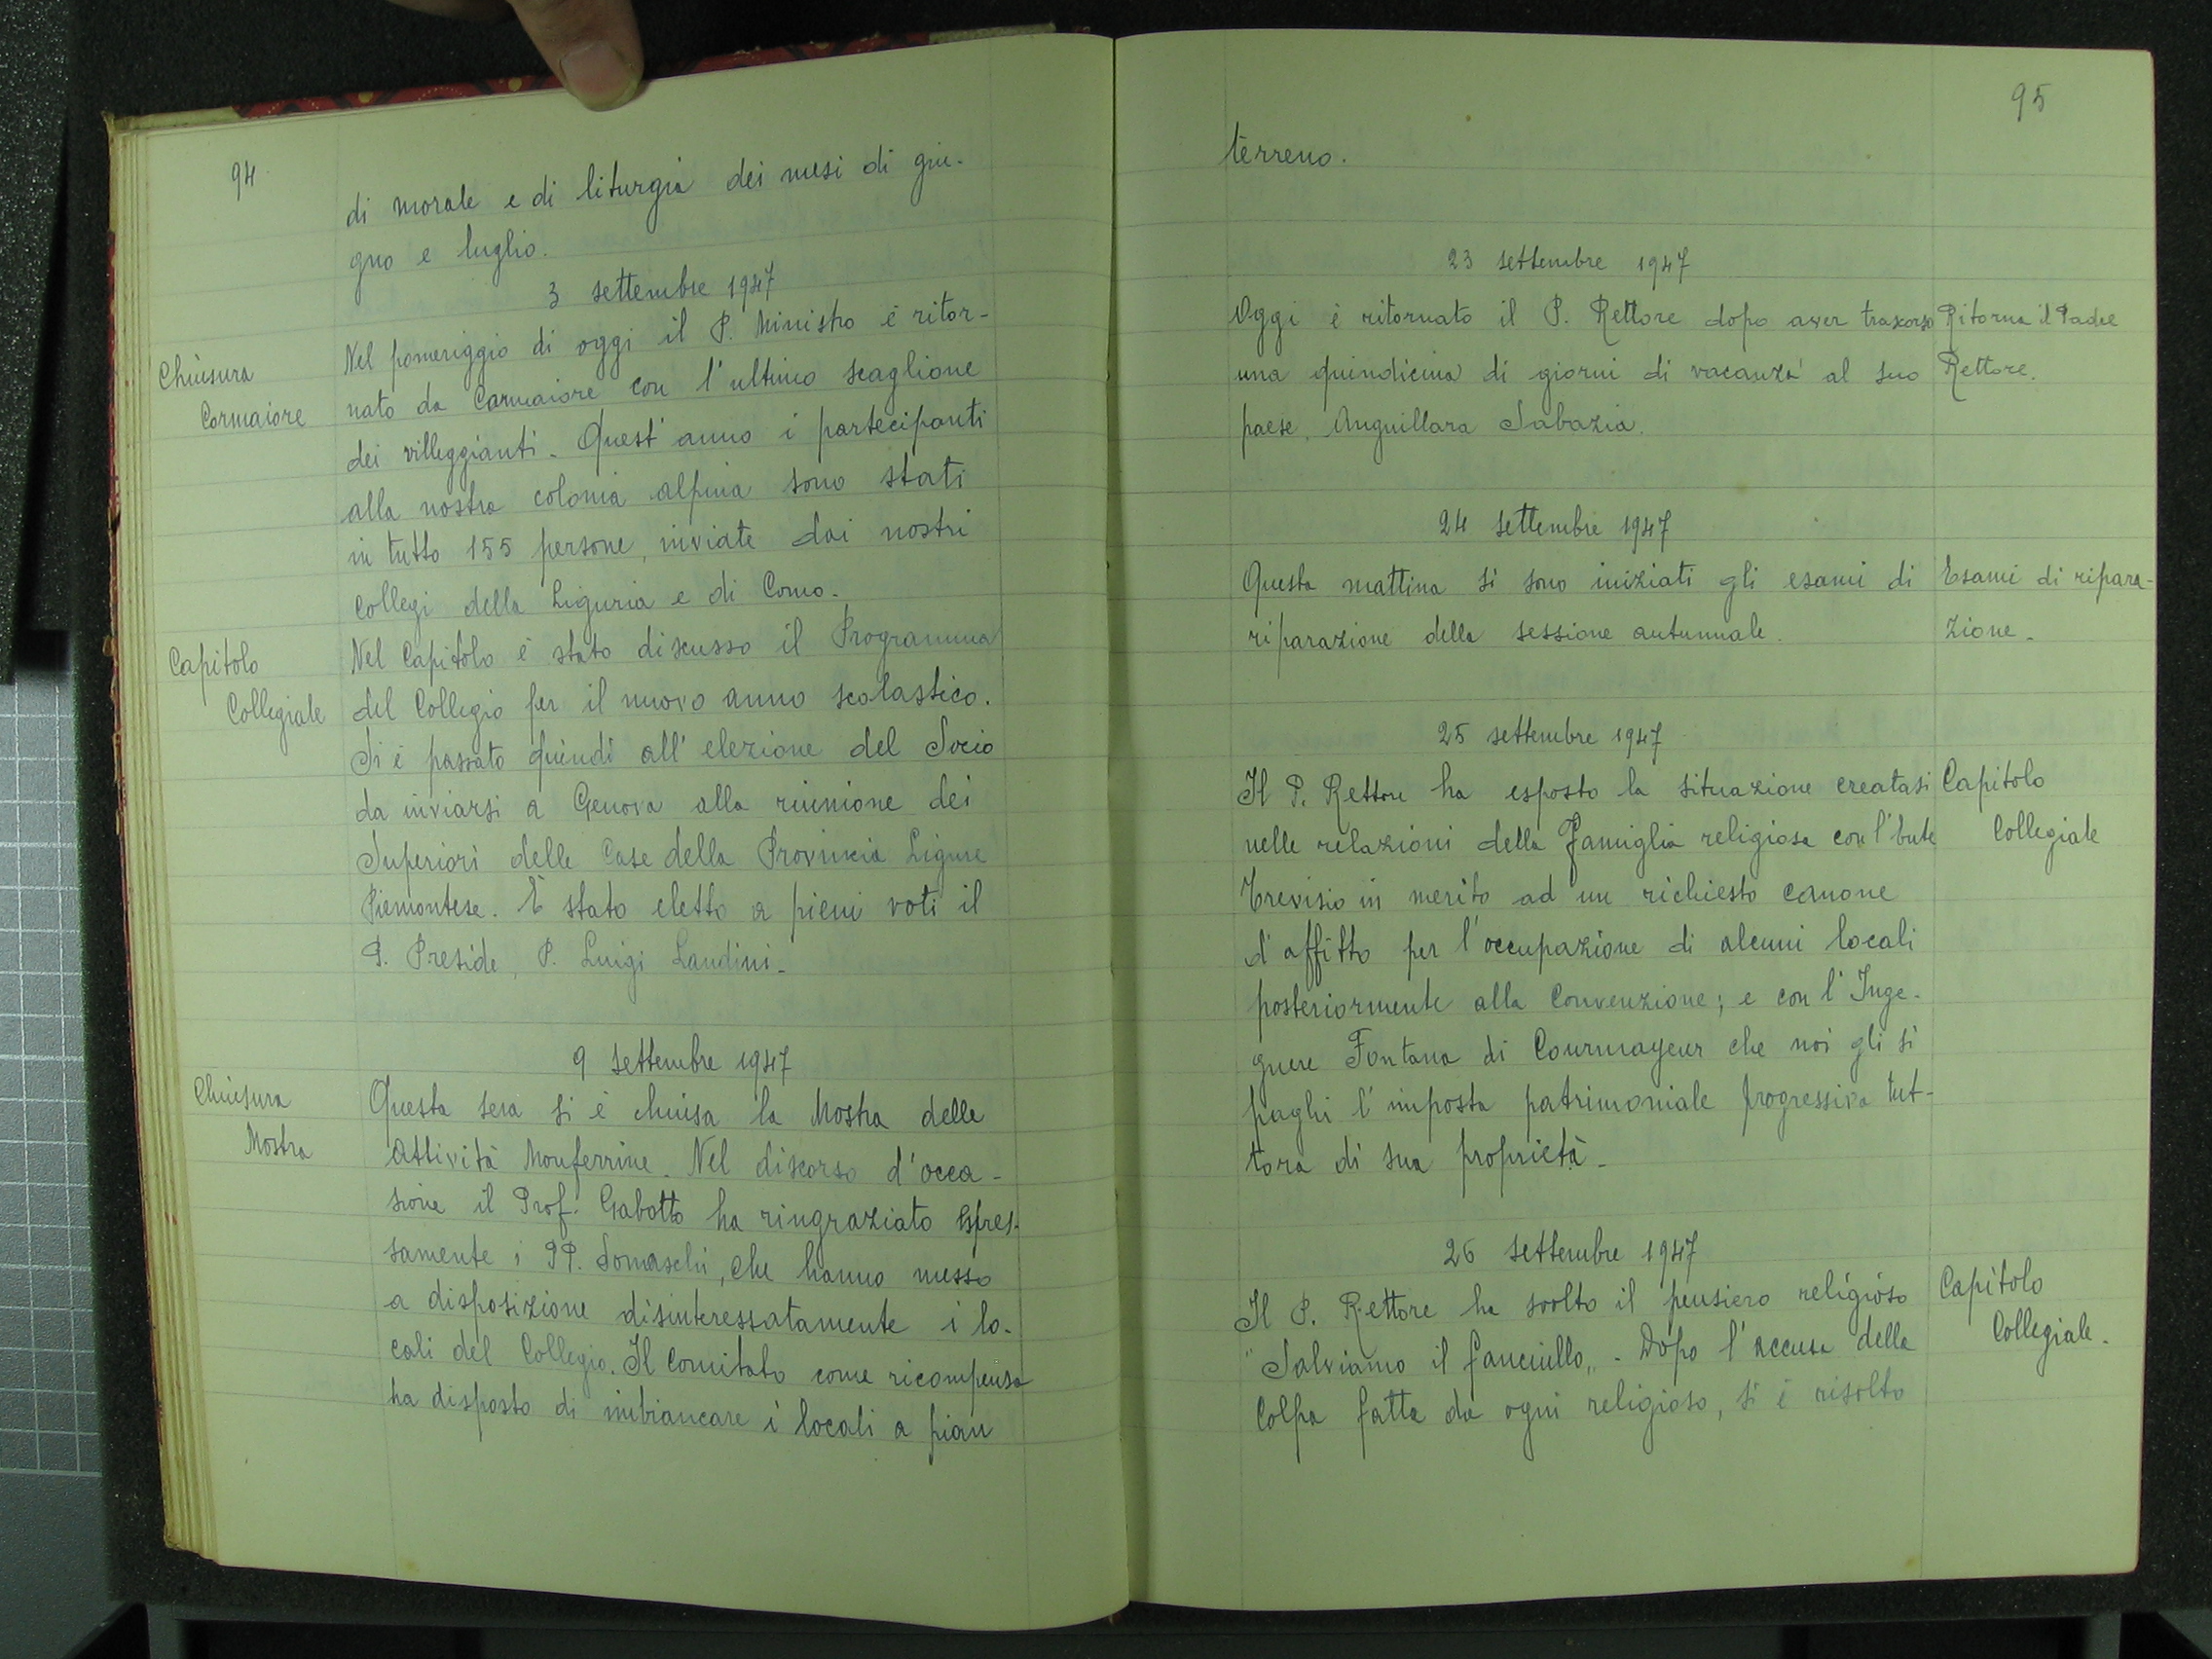 94
di morale e di liturgia dei mesi di giu-
gno e luglio.
3 settembre 1947
Chiusura
Cormaiore
Nel pomeriggio di oggi il P. Ministro è ritor-
nato da Cormaiore con l'ultimo scaglione
dei villeggianti. Quest'anno i partecipanti
alla nostra colonia alpina sono stati
in tutto 155 persone, inviate dai nostri
Collegi della Liguria e di Como.
Capitolo
Collegiale
Nel Capitolo è stato discusso il Programma
del Collegio per il nuovo anno scolastico.
Si è passato quindi all'elezione del Socio
da inviarsi a Genova alla riunione dei
Superiori delle Case della Provincia Ligure
Piemontese. È stato eletto a pieni voti il
P. Preside, P. Luigi Landini.
9 settembre 1947
Chiusura
Mostra
Questa sera si è chiusa la Mostra delle
Attività Monferrine. Nel discorso d'occa-
sione il Prof. Gabotto ha ringraziato espres-
samente i PP. Somaschi, che hanno messo
a disposizione disinteressatamente i lo-
cali del Collegio. Il Comitato come ricompensa
ha disposto di imbiancare i locali a pian
95
terreno.
23 settembre 1947
Oggi è ritornato il P. Rettore dopo aver trascorso
una quindicina di giorni di vacanza al suo
paese, Anguillara Sabazia.
Ritorna il Padre
Rettore.
24 settembre 1947
Questa mattina si sono iniziati gli esami di
riparazione della sessione autunnale.
Esami di ripara-
zione.
25 settembre 1947
Il P. Rettore ha esposto la situazione creatasi
nelle relazioni della Famiglia religiosa con l'Ente
Trevisio in merito ad un richiesto canone
d'affitto per l'occupazione di alcuni locali
posteriormente alla Convenzione; e con l'Inge-
gnere Fontana di Courmayeur che noi gli si
paghi l'imposta patrimoniale progressiva tut-
tora di sua proprietà.
Capitolo
Collegiale
26 settembre 1947
Il P. Rettore ha svolto il pensiero religioso
"Salviamo il fanciullo". Dopo l'accusa della
Colpa fatta da ogni religioso, si è risolto
Capitolo
Collegiale.